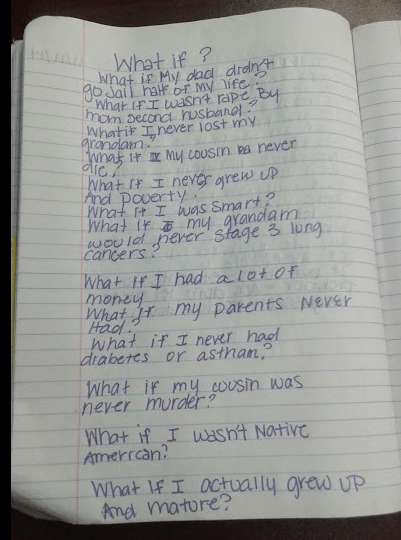 What if ?
What if My dad didn't
go Jail half of My life?
What if I wasn't rape By
mom second husband?
What if I never lost my
grandam?
What if My cousin never
die?
What if I never grew up
And poverty.
What if I was smart?
What if my grandam
would never stage 3 lung
cancers?
What if I had a lot of
money
What if my parents Never
Had?
What if I never had
diabetes or astham?
What if my cousin was
never murder?
What if I wasn't Native
American?
What if I actually grew up
And mature?